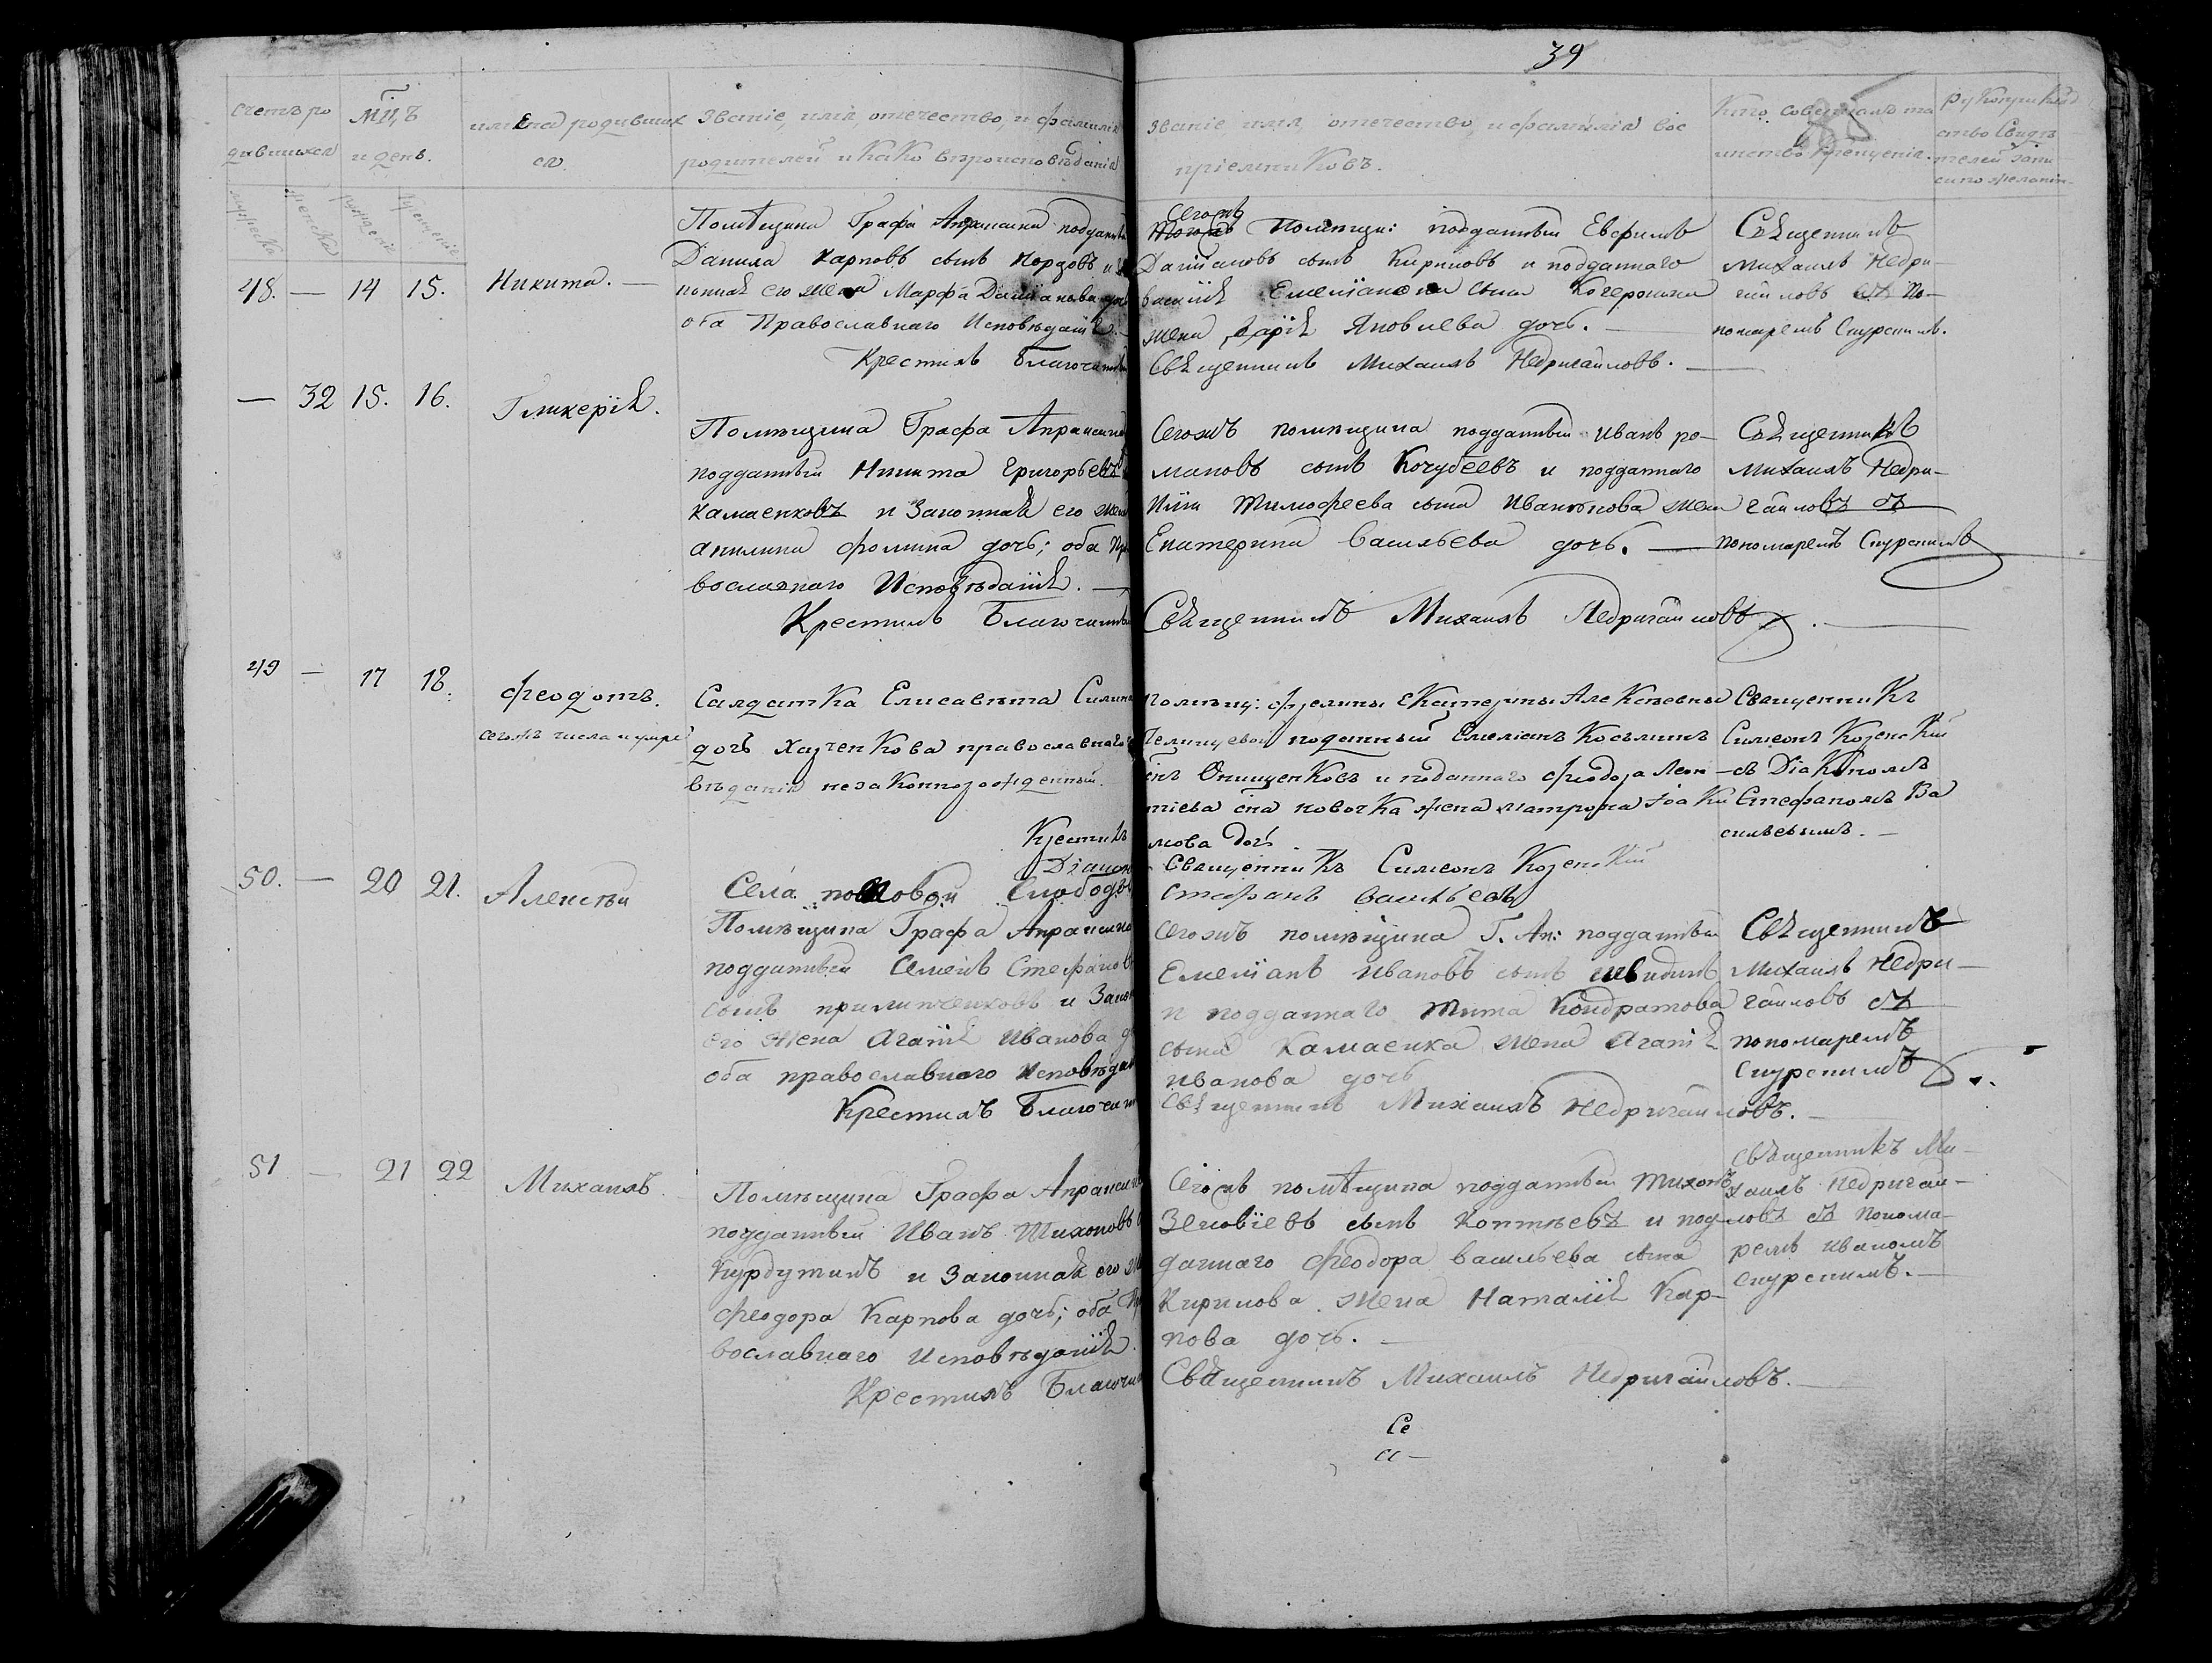 39
Счетъ ро
дившихся
мужеска
женска
Мц̃ъ
и день.
рожденіе
крещеніе
имена родивших
ся.
Званіе, имя, отечество, и фамилія
родителей и Како вѣроисповѣданія
Званіе, имя, отечество, и фамилія вос
пріемниковъ.
Кто совершалъ та
инство крещенія.
рукоприклад
ство свидѣ
телей запи
си по желанію.
48. — 14 15. Никита. —
Помѣщика Графа Апраксина поддан
Данила Карповъ сынъ
его жена Марфа Даміанова
оба Православнаго Исповѣданія. —
Крестилъ Благочин
Сегожъ
Помѣщи: подданный Евфимъ
Даміановъ сынъ Кириловъ и подданнаго
Василія Емеліанова сына
жена Дарія Яковлева дочь. —
Священникъ Михаилъ Недригайловъ. —
Священникъ
Михаилъ Недри—
гайловъ съ По—
номаремъ Снурскимъ.
— 32 15. 16. Гликерія.
Помѣщика Графа Апраксина
подданный Никита Григорьевъ
Камаенковъ и Законная его жена
Акилина Фомина дочь; оба Пра
вославнаго Исповѣданія. —
Крестилъ Благочинный
Сегожъ помѣщика подданный Иванъ Ро—
мановъ сынъ Кочубеевъ и подданнаго
Тимофеева сына Иваненкова жена
Екатерина Васильева дочь. —
Священникъ Михаилъ Недригайловъ. —
Священникъ
Михаилъ Недри—
гайловъ съ
пономаремъ Снурскимъ
49 — 17 18. Феодотъ.
сегожъ числа и умре
Салдатка Елисавета Силина
дочь Харченкова православнаго
вѣданія незаконнорожденный.
Крестилъ
Діакон
помѣщ: фрелины Екатерины Алексѣевны
подданный Емеліанъ Косьминъ
Онищенковъ и поданнаго Феодора Леон
тіева сна жена Матрона Іоаки
мова дочь.
Священникъ Симеонъ Козенскій
Стефанъ Васильевъ
Священникъ
Симеонъ Козенскій
— съ Діакономъ
Стефаномъ Ва
сильевымъ. —
50. — 20 21. Алексѣй
Села Слободы
Помѣщика Графа Апраксина
подданный Семенъ Стефановъ
сынъ и Закон
его жена Агаѳія Иванова до
оба православнаго Исповѣдан
Крестилъ Благочин
сегожъ помѣщика Г. Ап: подданный
Емеліанъ Ивановъ сынъ
и подданнаго Тита Кондратова
сына Камаенка жена Агаѳія
Иванова дочь
Священникъ Михаилъ Недригайловъ. —
Священникъ
Михаилъ Недри—
гайловъ съ
пономаремъ
Снурскимъ
51 — 21 22 Михаилъ.
Помѣщика Графа Апраксина
подданный Иванъ Тихоновъ
и Законная его же
Феодора Карпова дочь; оба Пра
вославнаго Исповѣданія.
Крестилъ Благочин
Сегожъ помѣщика подданный Тихонъ
Зеновіевъ сынъ Коптѣевъ и под—
даннаго Феодора Васильева сына
Кирилова жена Наталія Кар—
пова дочь. —
Священникъ Михаилъ Недригайловъ. —
Священникъ Ми—
хаилъ Недригай—
ловъ съ Понома—
ремъ Иваномъ
Снурскимъ. —
Се